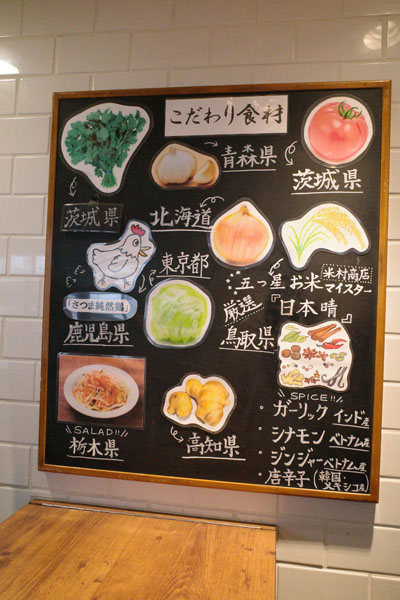 こだわり食材
青森県
茨城県
茨城県
北海道
東京都
米村商店
五つ星お米マイスター
厳選
『日本晴』
「さつま純然鶏」
鹿児島県
鳥取県
SALAD!!
栃木県
高知県
SPICE!!
・ガーリック インド産
・シナモン ベトナム産
・ジンジャー ベトナム産
・唐辛子(韓国・メキシコ産)